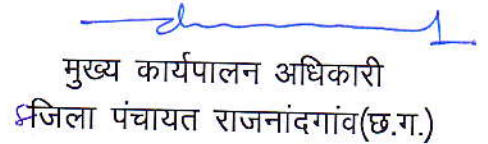 मुख्य कार्यपालन अधिकारी
जिला पंचायत राजनांदगांव(छ.ग.)